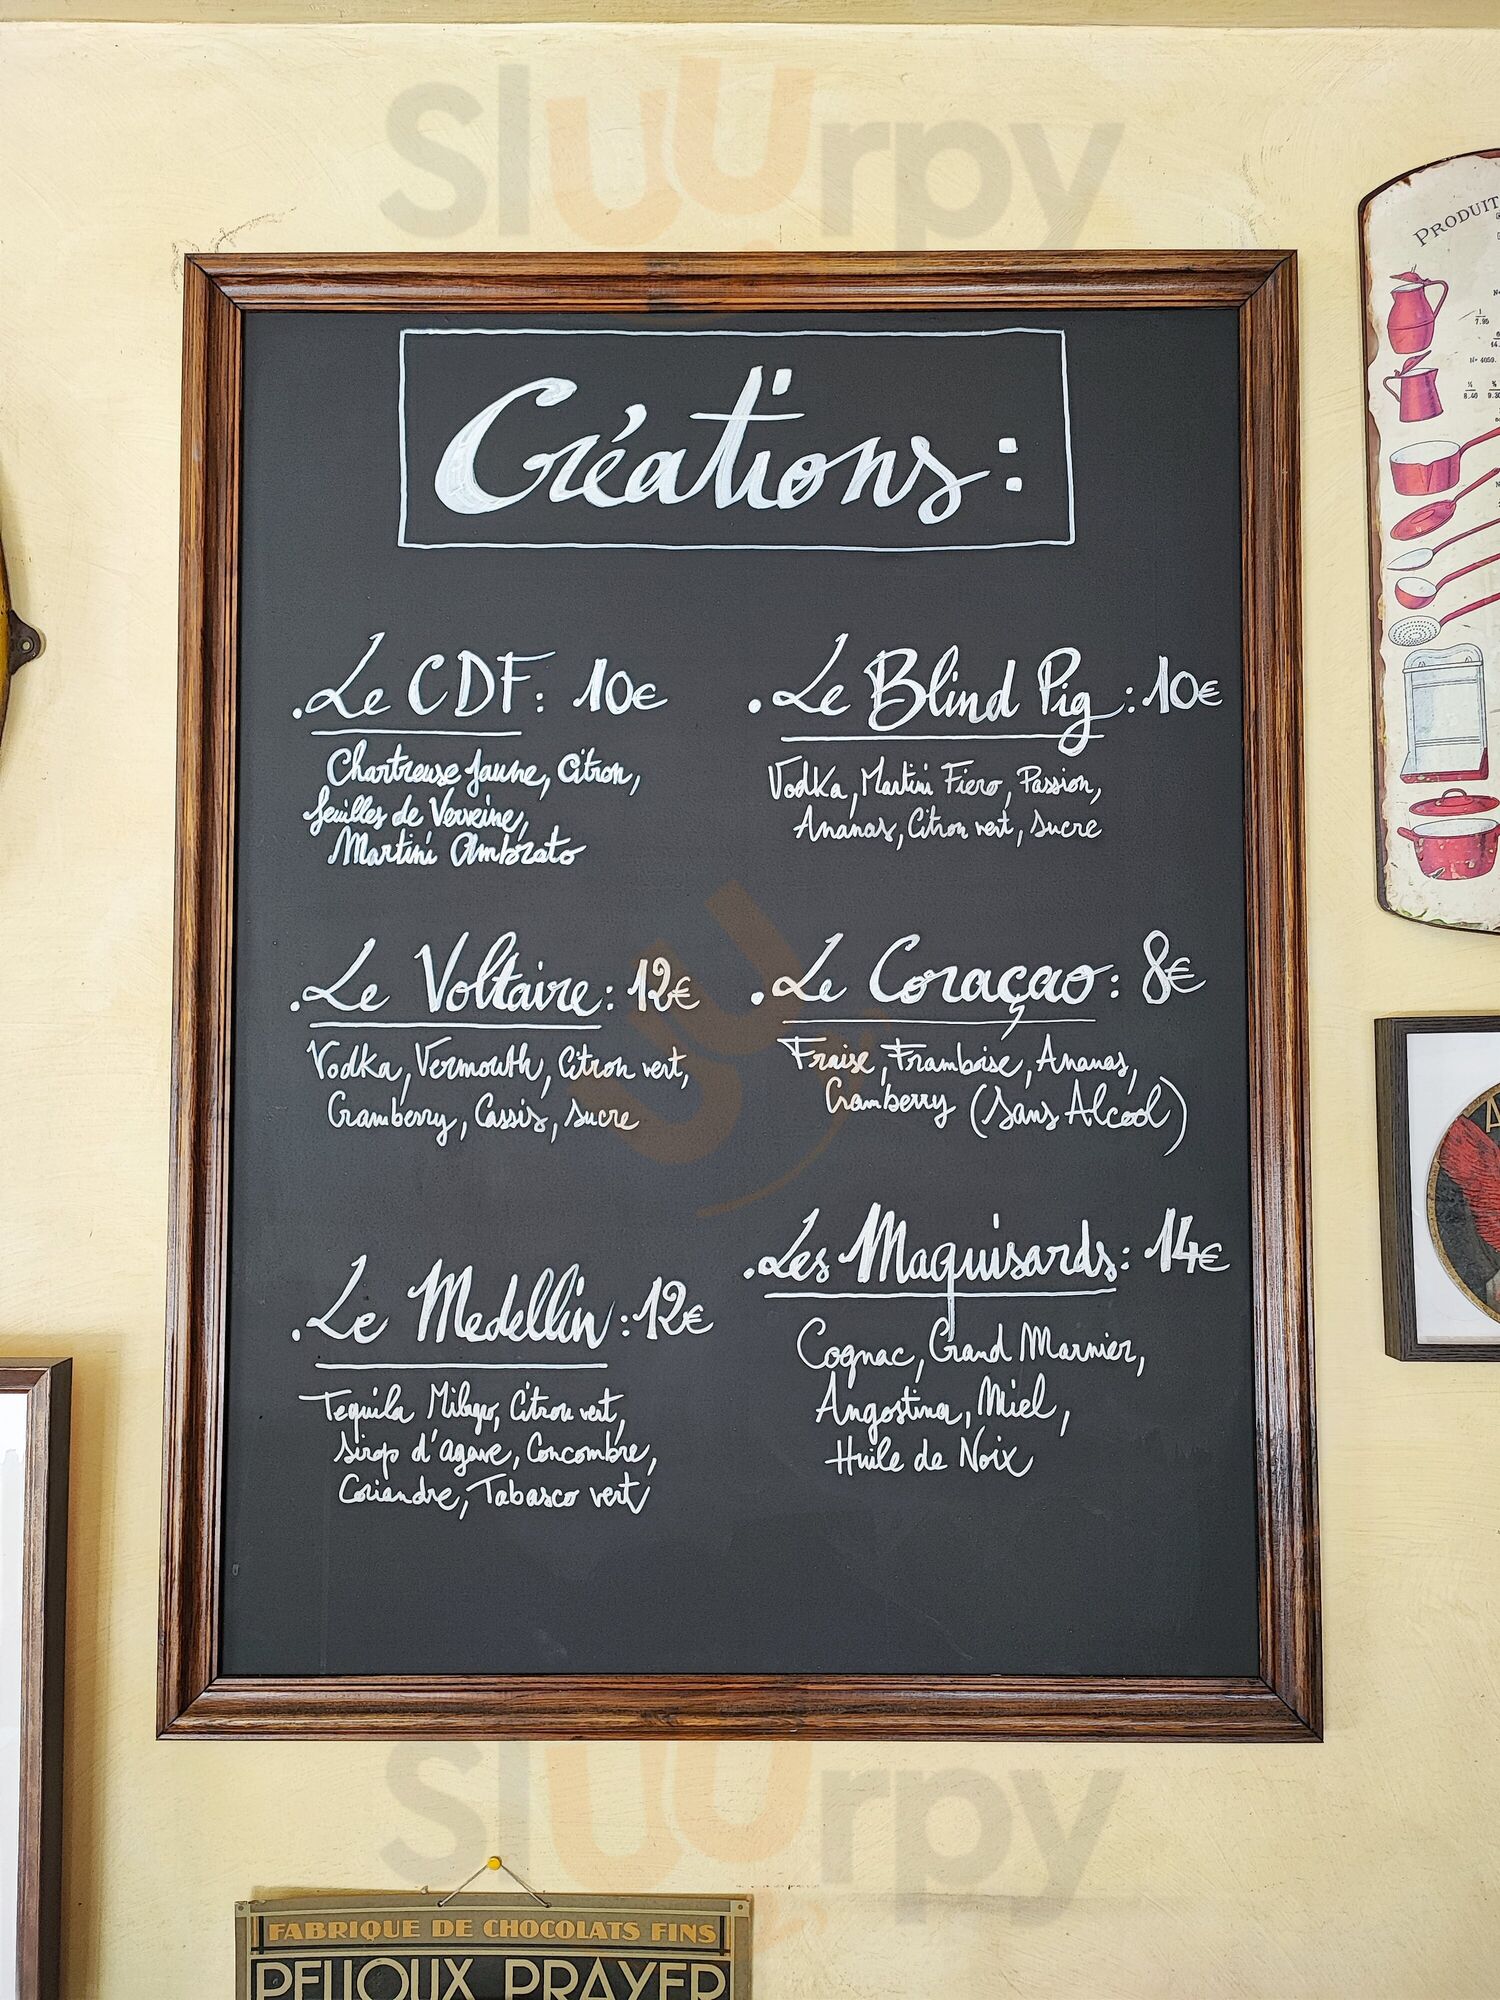 Sluurpy
Créations :
. Le CDF : 10€
Chartreuse Jaune, Citron,
feuilles de Verveine,
Martini Ambrato
. Le Blind Pig : 10€
Vodka, Martini Fiero, Passion,
Ananas, Citron vert, sucre
. Le Voltaire : 12€
Vodka, Vermouth, Citron vert,
Cramberry, Cassis, sucre
. Le Coraçao : 8€
Fraise, Framboise, Ananas,
Cramberry (Sans Alcool)
. Le Medellin : 12€
Tequila Citron vert,
sirop d'agave, Concombre,
Coriandre, Tabasco vert
. Les Maquisards : 14€
Cognac, Grand Marnier,
Angostina, Miel,
Huile de Noix
PRODUIT
Sluurpy
FABRIQUE DE CHOCOLATS FINS
PELIOUX PRAYER